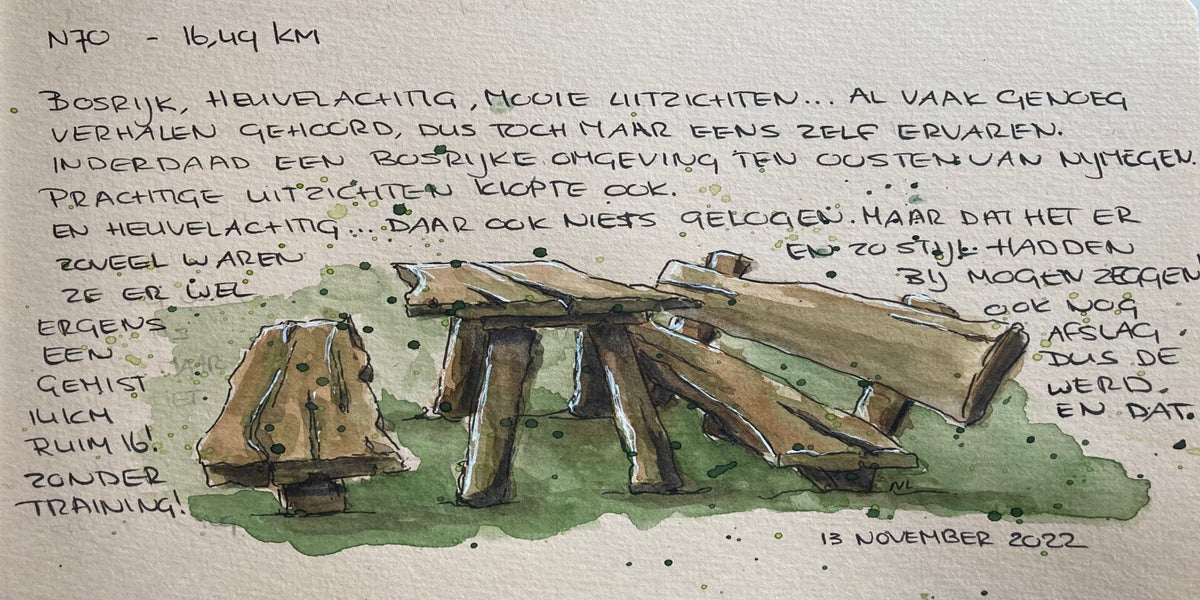 N70 - 16,49 KM
BOSRIJK, HEUVELACHTIG, MOOIE UITZICHTEN... AL VAAK GENOEG
VERHALEN GEHOORD, DUS TOCH MAAR EENS ZELF ERVAREN.
INDERDAAD EEN BOSRIJKE OMGEVING TEN OOSTEN VAN NIJMEGEN.
PRACHTIGE UITZICHTEN KLOPTE OOK.
EN HEUVELACHTIG... DAAR OOK NIETS GELOGEN. MAAR DAT HET ER
ZOVEEL WAREN EN ZO STIJL HADDEN
ZE ER WEL BIJ MOGEN ZEGGEN
ERGENS OOK NOG
EEN AFSLAG
GEMIST DUS DE
14KM WERD
RUIM 16! EN DAT.
ZONDER
TRAINING!
NL
13 NOVEMBER 2022